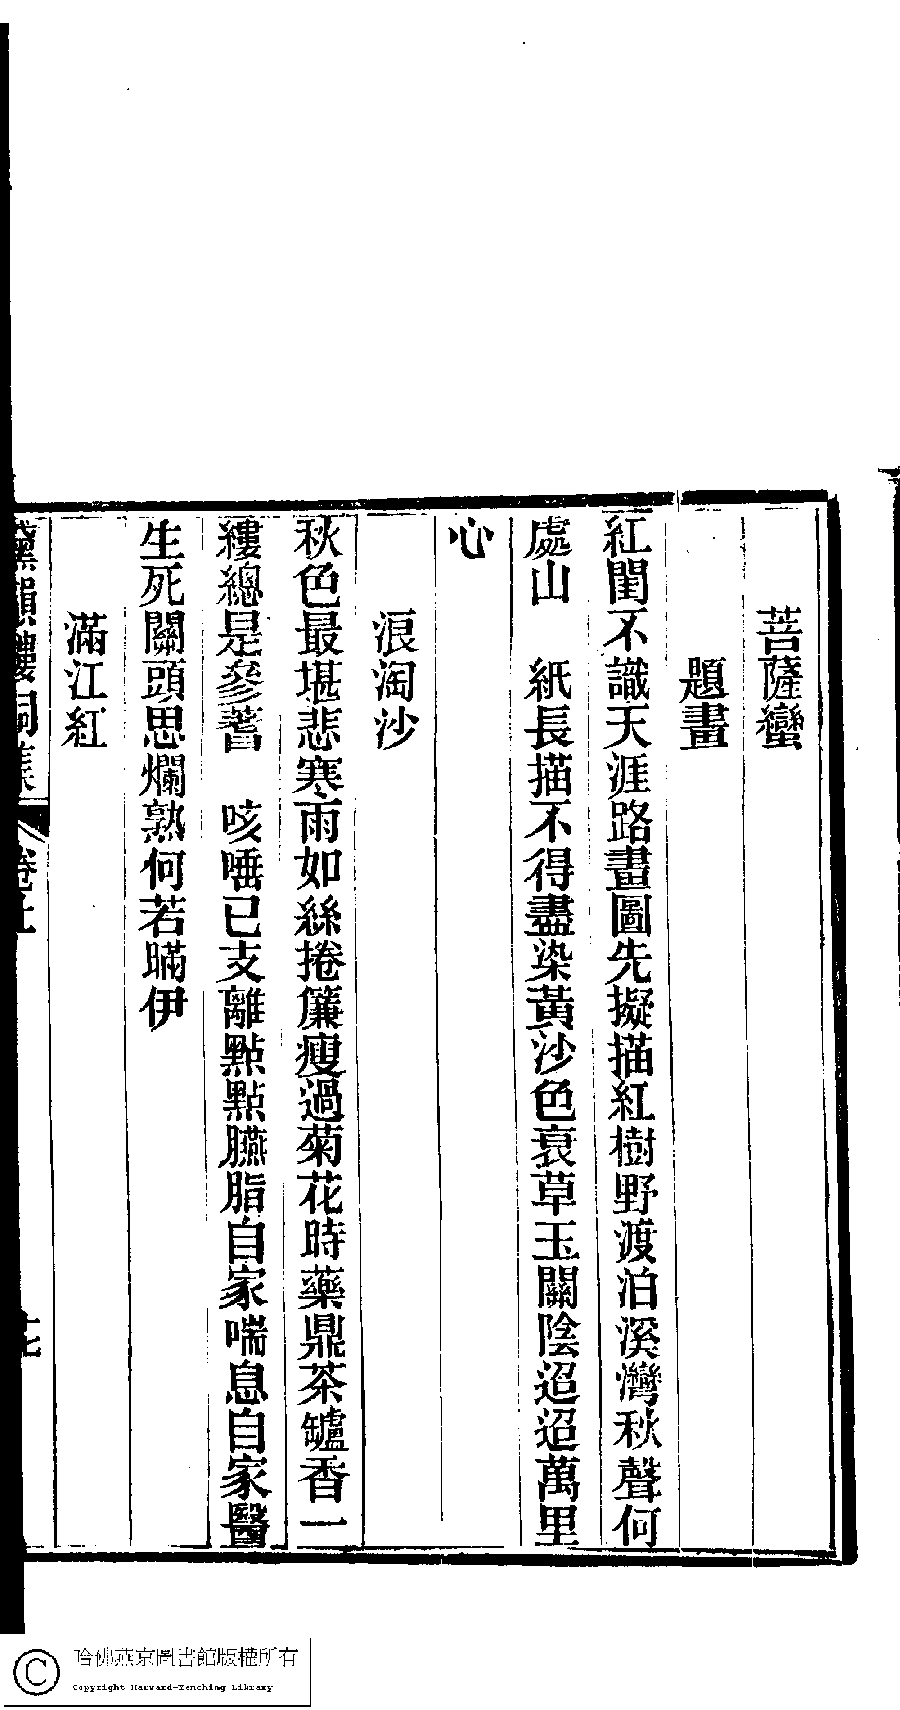 菩薩蠻
題畫
紅閨不識天涯路畫圖先擬描紅樹野渡泊溪灣秋聲何
處山　紙長描不得盡染黃沙色衰草玉關陰迢迢萬里
心
浪淘沙
秋色最堪悲寒雨如絲捲簾瘦過菊花時藥鼎茶罏香一
縷總是參蓍　咳唾已支離點點臙脂自家喘息自家醫
生死關頭思爛熟何若瞞伊
滿江紅
黛韻樓詞集　卷上
哈佛燕京圖書館版權所有
Copyright Harvard-Yenching Library